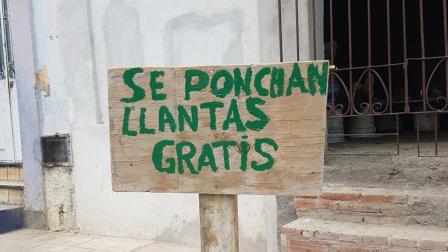 SE PONCHAN
LLANTAS
GRATIS